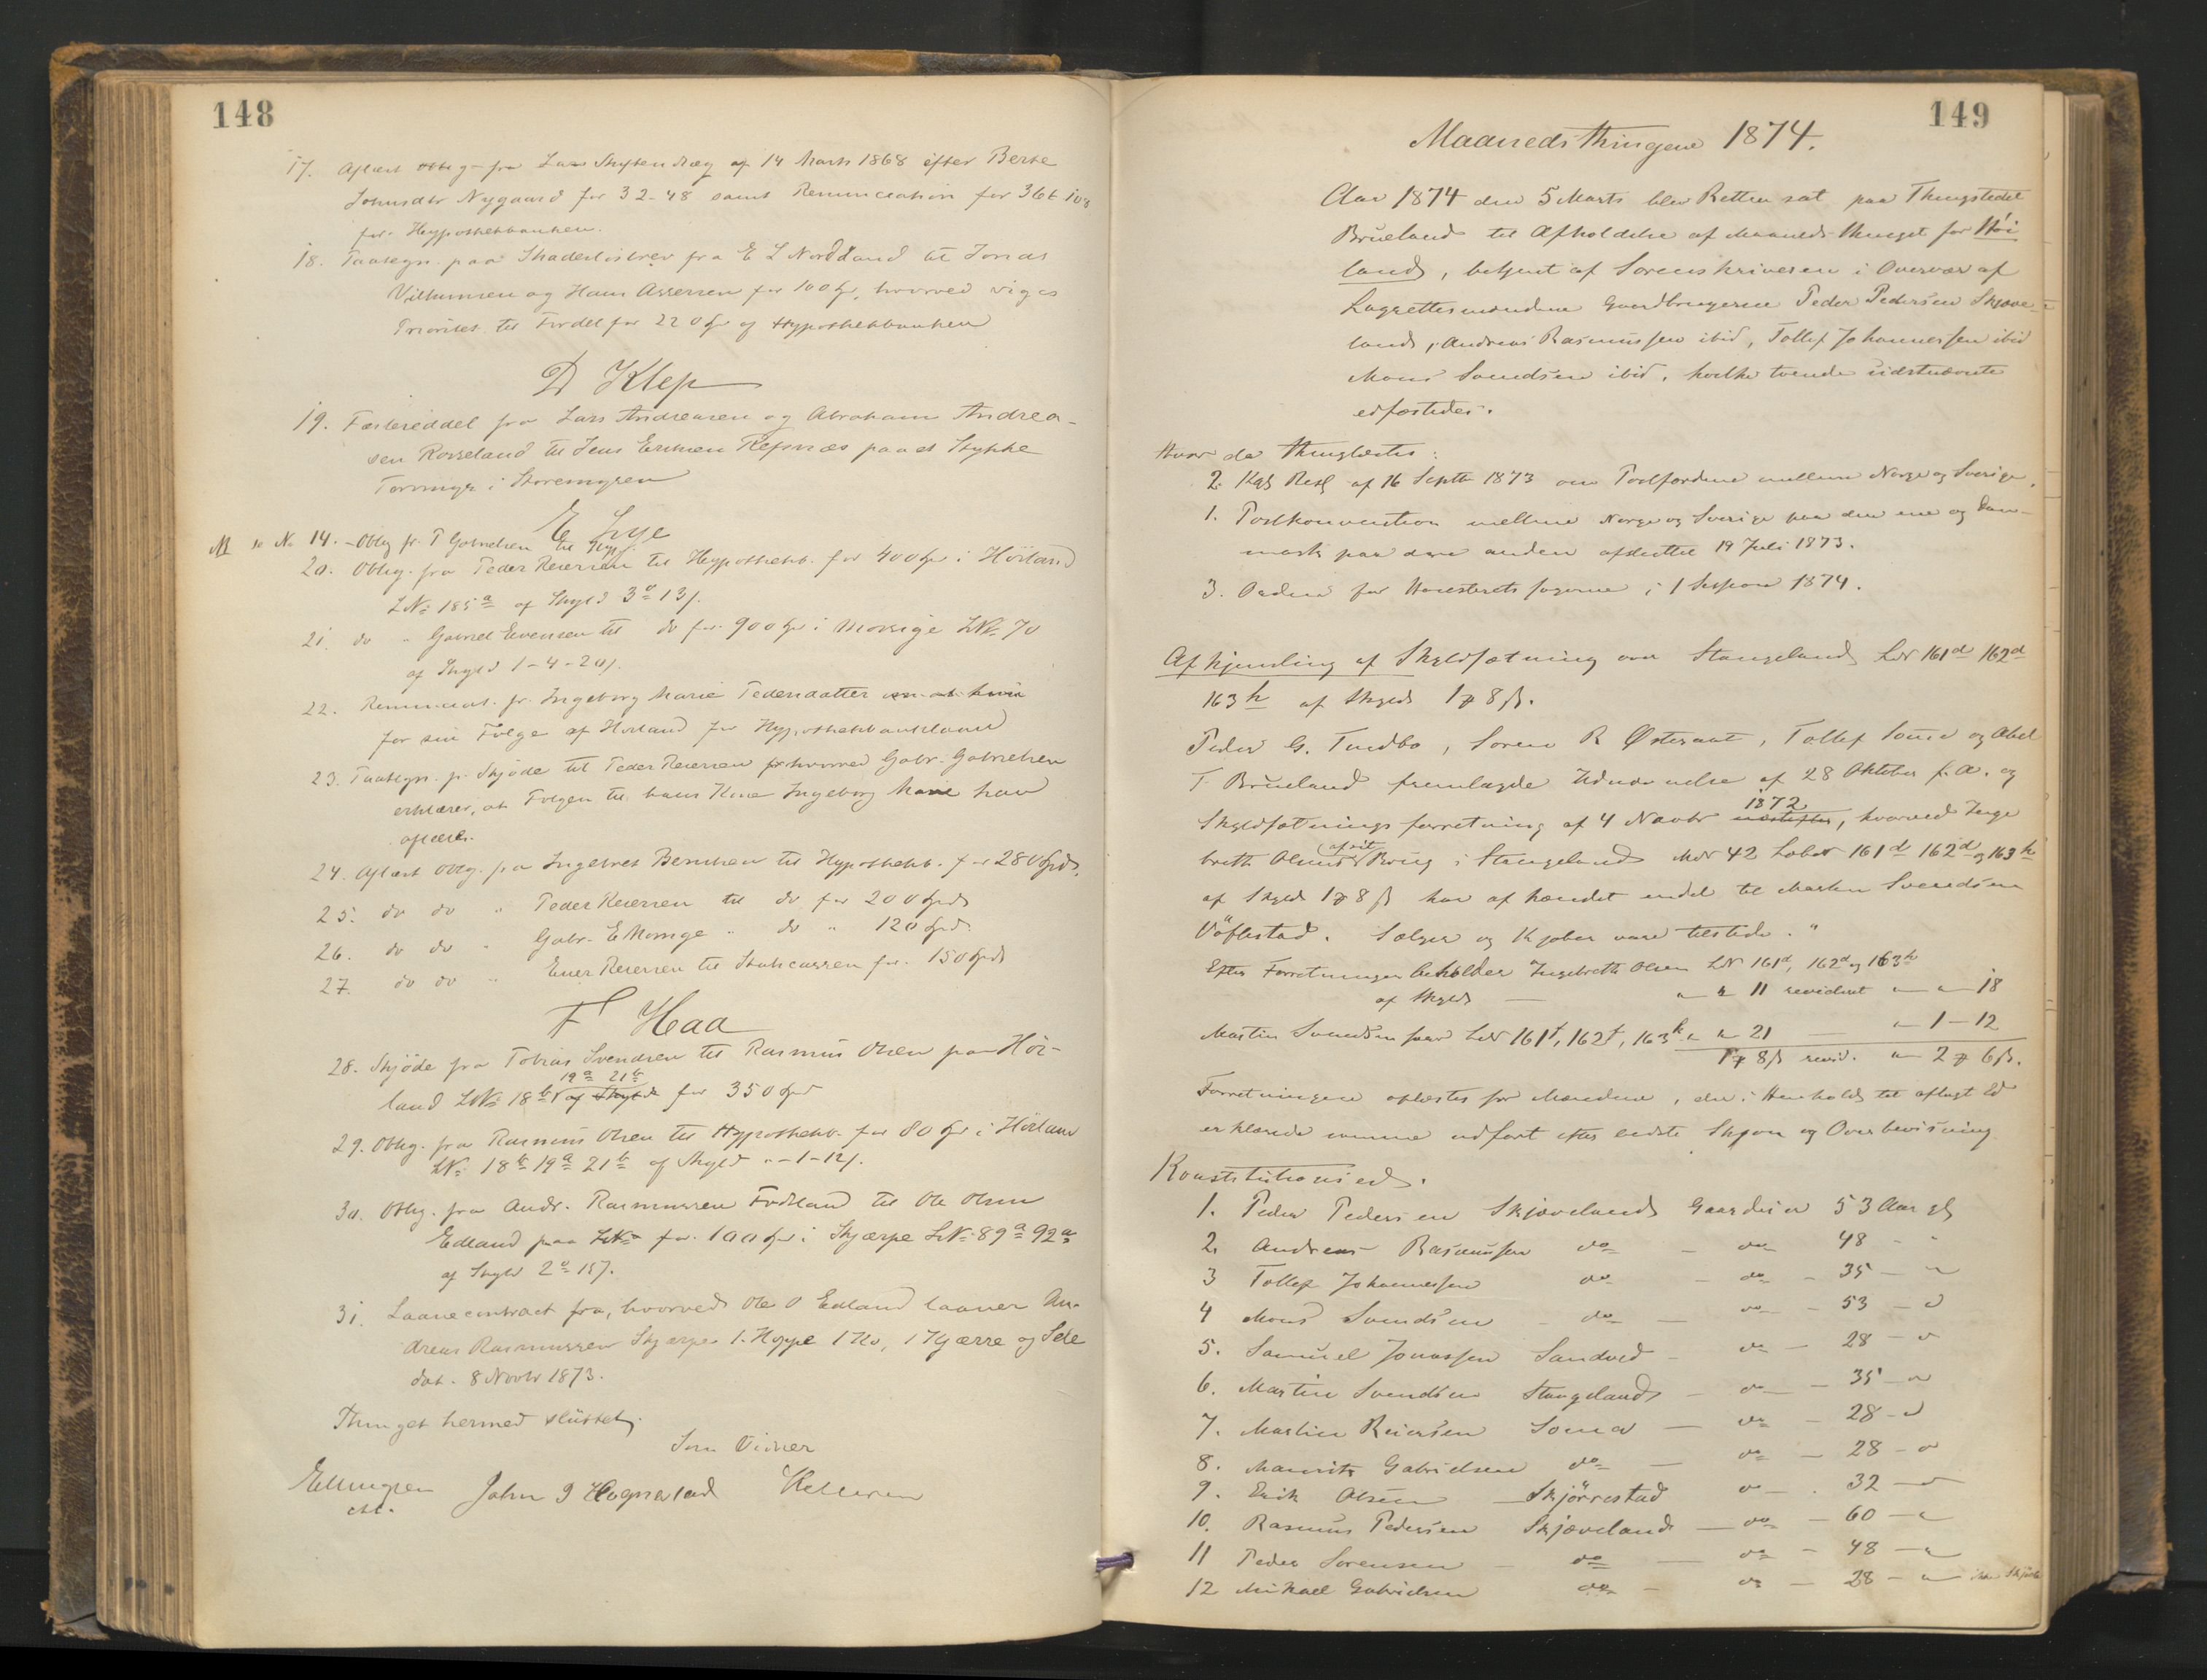 148
17. Aflæst Oblig fra Lars Skiftendlæg af 14 Marts 1868 efter Berte
Johnsdtr Nygaard for 32-48 samt Renunciation for
for Hypothekbanken.
18. Paategn. paa Skadesløsbrev fra E L Nordland til Jonas
Vilhumsen og Hans Assersen for 100 Spd, hvorved viges
Prioritet til Fordel for 220 Spd af Hypothekbanken
D Klep
19. Fæsteseddel fra Lars Andreasen og Abraham Andrea-
sen Rosseland til Jens Eriksen Refsnæs paa et Stykke
Torvmyr i Storemyren
E Lye
No 14. - Oblig fr. T Gabrielsen til Hyp.
20. Oblig. fra Peder Reiersen til Hypothekb. for 400 Spd i Hörland
LNo 185a af Skyld 3 13/.
21. do " Gabriel Evensen til do for 900 Spd i Morsige LNo 70
af Skyld 1-4-20/.
22. Renunciat. fr. Ingeborg Marie Pedersdatter
for sin Følge af Hörland for Hypothekbanklaanet
23. Paategn. p. Skjøde til Peder Reiersen hvorved Gabr. Gabrielsen
erklærer, at Følgen til hans Kone Ingeborg Marie har
ophørt.
24. Aflæst Oblig. fra Ingebret Berntsen til Hypothekb. for 280 Spd.
25. do do " Peder Reiersen til do for 200 Spd
26. do do " Gabr. E Morsige " do " 120 Spd.
27. do do " Einer Reiersen til for 150 Spd
F Haa
28. Skjøde fra Tobias Svendsen til Rasmus Olsen paa Hör-
19a 21b
land LNo 18b af Skyld for 350 Spd
29. Oblig. fra Rasmus Olsen til Hypothekb. for 80 Spd i Hörland
LNo 18b 19a 21b af Skyld "-1-12/.
30. Oblig. fra Andr. Rasmussen Fodland til Ole Olsen
Edland paa LNo for 100 Spd i Skjærpe LNo 89a 92a
af Skyld 2 15/.
31. Laanecontract fra, hvorved Ole O Edland laaner An-
dreas Rasmussen Skjærpe 1 Hoppe 1 Ko, 1 Kjærre og Sele
dat. 8 Novbr 1873.
Thinget hermed sluttet.
Som Vidner
Ellingsen John J Hognestad
cst.
149
Maanedsthingene 1874.
Aar 1874 den 5 Marts blev Retten sat paa Thingstedet
Brueland til Afholdelse af Maanedsthinget for Høi
land, betjent af Sorenskriveren i Overvær af
Lagrettesmændene Gaardbrugerne Peder Pedersen Skjæve-
land, Andreas Rasmussen ibid, Tollef Johannessen ibid
Mons Svendsen ibid, hvilke tvende sidstnævnte
edfæstedes.
Hvor da thinglæstes:
2. Kgl Resl af 16 Septbr 1873 om Postførdene mellem Norge og Sverige.
1. Postkonvention mellem Norge og Sverige paa den ene og Dan-
mark paa den anden afsluttet 19 Juli 1873.
3. Orden for Høiesterets Sagerne i 1 Session 1874.
Afhjemling af Skyldsætning over Stangeland LNr 161d 162d
163h af Skyld 1 8 ß.
Peder G. Tindbo, Søren R Østeraat, Tollef Soma og Abel
T. Brueland fremlagde Udnævnelse af 28 Oktober f. A. og
1872
Skyldsætningsforretning af 4 Novbr næstefter, hvorved Inge
af sit
breth Olsen Brug i Stangeland MNr 42 LøbNr 161d 162d og 163h
af Skyld 1 8 ß har afhændet endel til Martin Svendsen
Vöflestad. Sælger og Kjøber vare tilstede."
Efter Forretningen beholder Ingebreth Olsen LNr 161d, 162d og 163h
af Skyld — " " 11 revideret " " 18
Martin Svendsen faar LNr 161f, 162f, 163k " " 21 — " 1-12
1 8 ß revid. " 2 6 ß.
Forretningen oplæstes for Mændene, der i Henhold til aflagt Ed
erklærede samme udført efter bedste Skjøn og Overbevisning
Konstitutionsed.
1. Peder Pedersen Skjæveland Gaardeier 53 Aar gl
2. Andreas Rasmussen do — do 48 - "
3 Tollef Johannessen do — do — 35 — "
4 Mons Svendsen do — do — 53 — "
5. Samuel Jonassen Sandved — do — 28 — "
6. Martin Svendsen Stangeland — do — 35 — "
7. Martin Reiersen Soma — do — 28 — "
8. Mauritz Gabrielsen do — do — 28 — "
9. Erik Olsen Skjörrestad do — 32 — "
10. Rasmus Pedersen Skjæveland — do — 60 — "
11 Peder Sorensen — do — do — 48 — "
12 Mikael Gabrielsen do — do — 28 — "